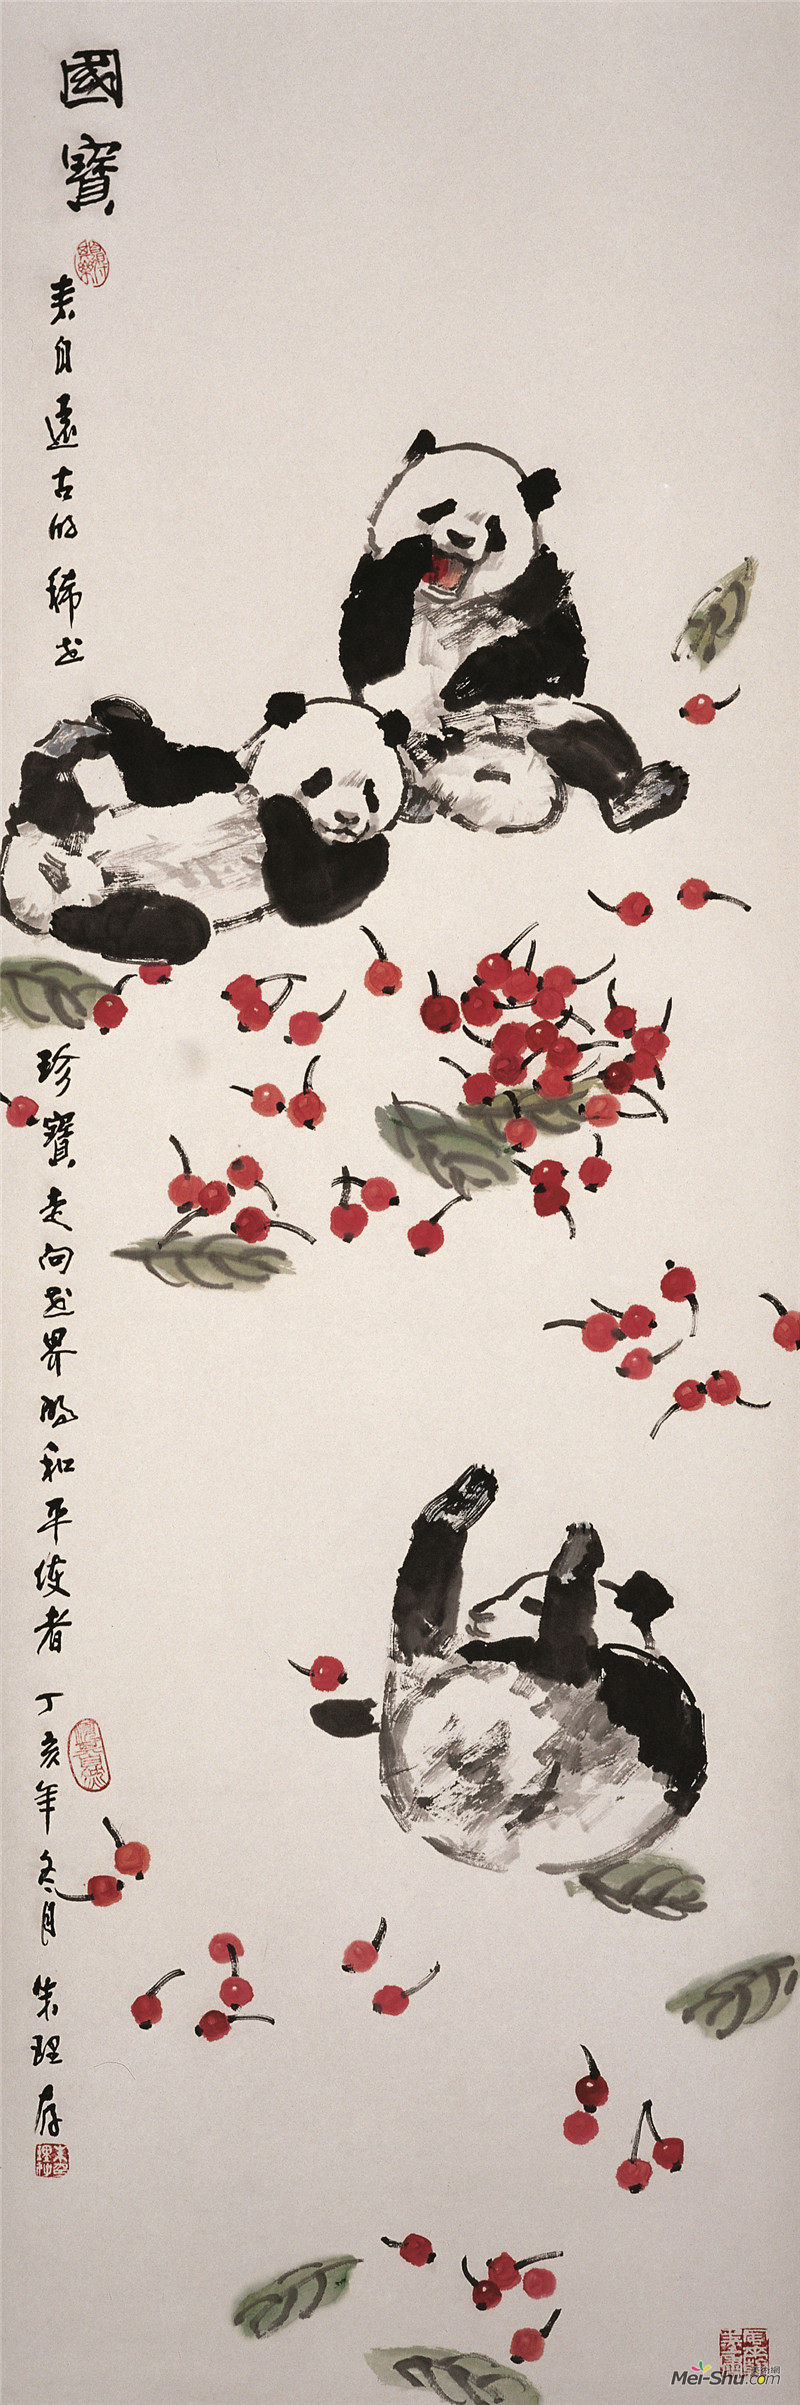 國寶
来自遠古的稀世
珍寶走向世界的和平使者 丁亥年冬月 朱理存
美術網
Mei-Shu.com